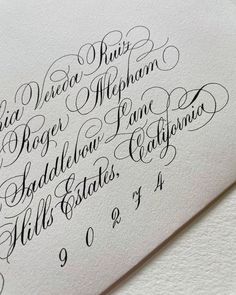 Vereda Ruiz
Roger Alepham
Saddlebow Lane
Hills Estates, California
9 0 2 7 4